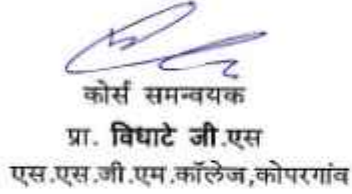 कोर्स समन्वयक
प्रा. विधाटे जी.एस
एस.एस.जी.एम.कॉलेज,कोपरगांव